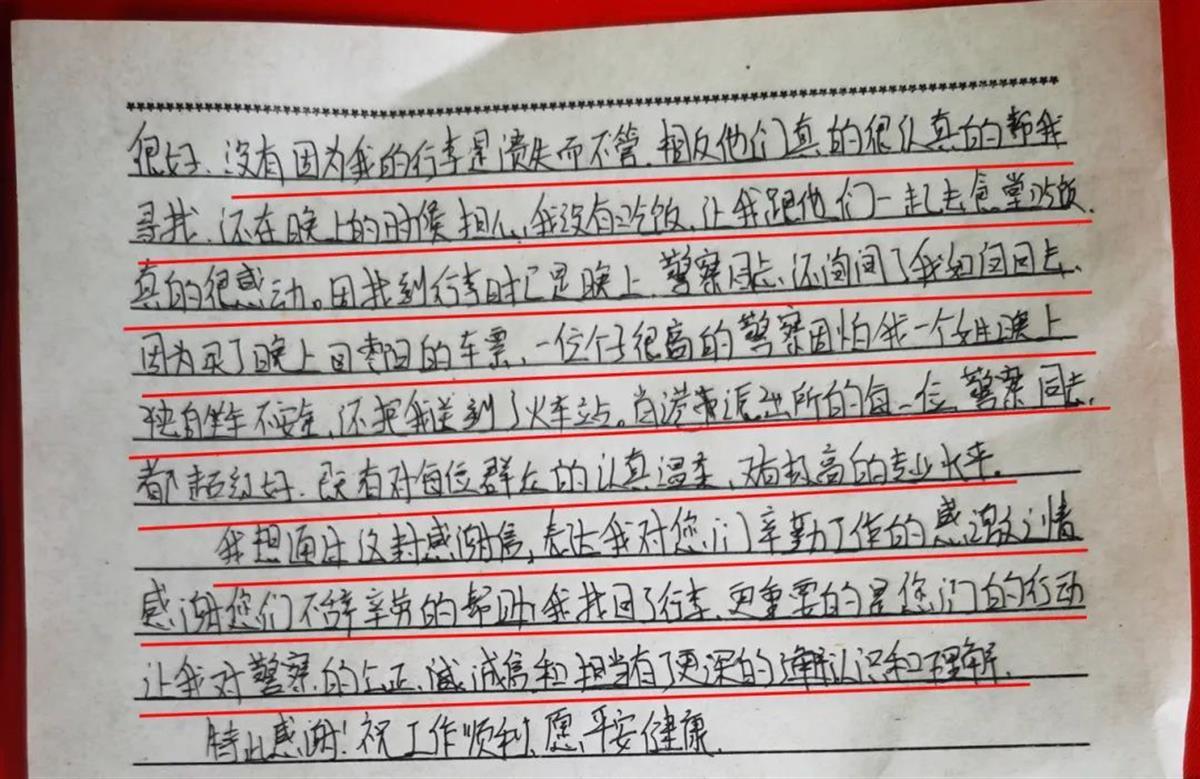 很好、没有因为我的行李是遗失而不管，相反他们真的很认真的帮我
寻找、还在晚上的时候担心我没有吃饭，让我跟他们一起去食堂吃饭、
真的很感动。因找到行李时已是晚上、警察同志、还询问了我如何回去、
因为买了晚上回枣阳的车票、一位个子很高的警察因怕我一个女生晚上
独自坐车不安全、还把我送到了火车站。肖港派出所的每一位警察同志、
都超级好、既有对每位群众的认真温柔、又有极高的专业水平。
我想通过这封感谢信，表达我对您们辛勤工作的感激之情
感谢您们不辞辛劳的帮助我找回了行李、更重要的是您们的行动
让我对警察的公正、诚信和担当有了更深的认识和理解、
特此感谢！祝工作顺利、愿平安健康、